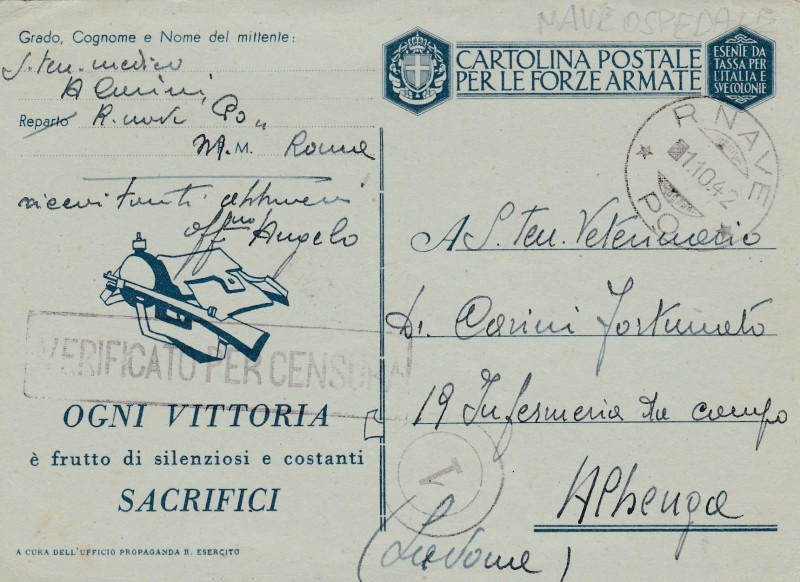 NAVE OSPEDALE
Grado, Cognome e Nome del mittente:
S. ten. medico
A Carini,
Reparto R. nave "Po"
M. M. Roma
ricevi tanti abbracci
aff.mo Angelo
VERIFICATO PER CENSURA
OGNI VITTORIA
è frutto di silenziosi e costanti
SACRIFICI
A CURA DELL'UFFICIO PROPAGANDA R. ESERCITO
CARTOLINA POSTALE
PER LE FORZE ARMATE
ESENTE DA
TASSA PER
L'ITALIA E
SVE COLONIE
R. NAVE
1.10.42
PO
A S. Ten. Veterinario
Dr. Carini Fortunato
19 Infermeria da campo
Albenga
(Savona)
1